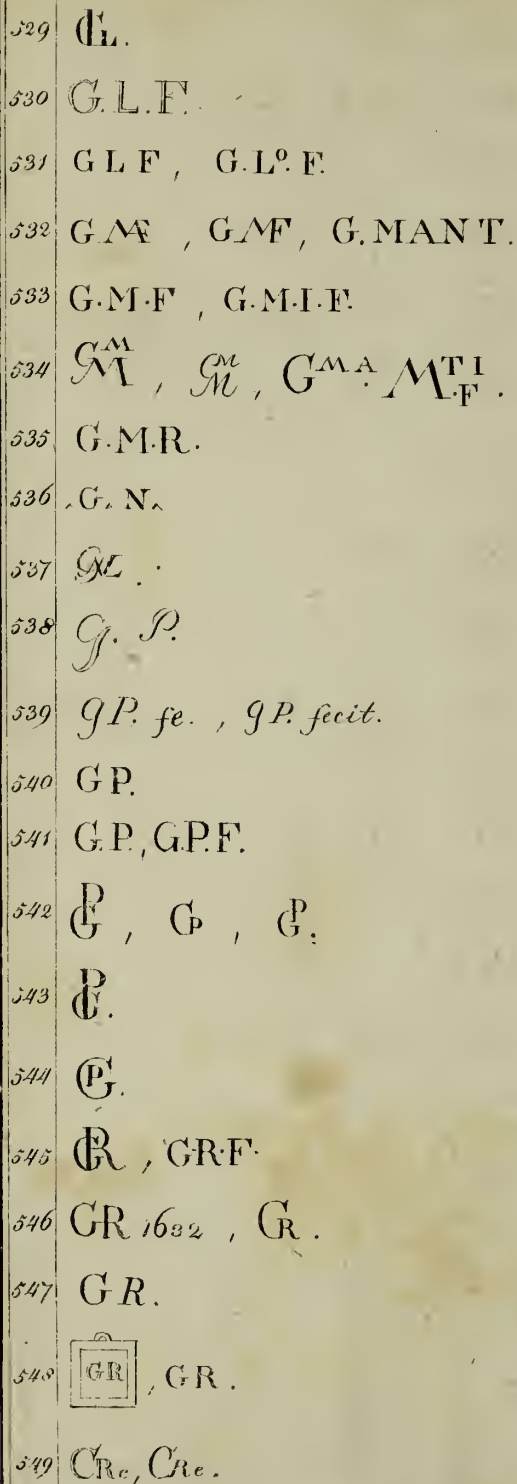 529 GL.
530 G.L.F.
531 GLF, G.Lº.F.
532 G.MF, G.MF, G.MANT.
533 G.M.F, G.M.I.F.
534 GMM, GMM, GMA. MTI.F.
535 G.M.R.
536 .G.N.
537
538 G. P.
539 gP. fe., gP. fecit.
540 GP.
541 G.P., G.P.F.
542 GP, GP, GP.
543
544 GP.
545 GR, G.R.F.
546 GR 1632, GR.
547 GR.
548 GR, GR.
549 CRe, CRe.